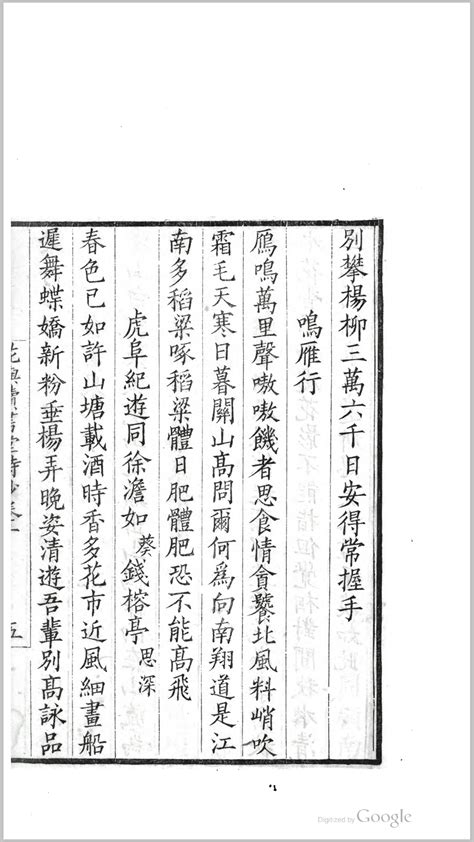 別攀楊柳三萬六千日安得常握手
鳴雁行
鴈鳴萬里聲嗷嗷饑者思食情貪饕北風料峭吹
霜毛天寒日暮關山高問爾何爲向南翔道是江
南多稻粱啄稻粱體日肥體肥恐不能高飛
虎阜紀遊同徐澹如葵錢榕亭思深
春色已如許山塘載酒時香多花市近風細畫船
遲舞蝶嬌新粉垂楊弄晚姿清遊吾輩別高詠品
五
Digitized by Google